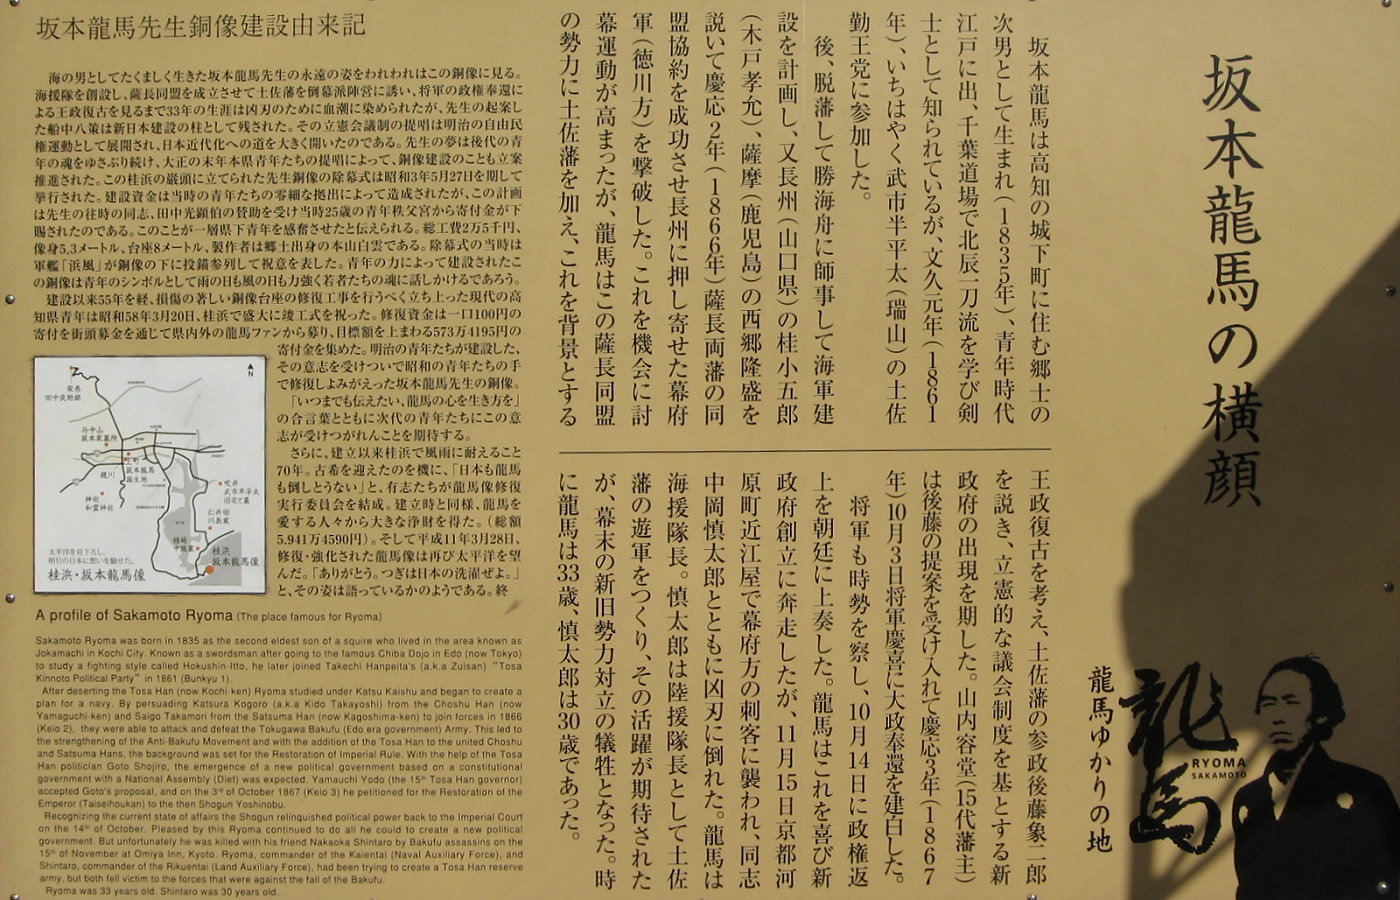 坂本龍馬の横顔
坂本龍馬は高知の城下町に住む郷士の
次男として生まれ(1835年)、青年時代
江戸に出、千葉道場で北辰一刀流を学び剣
士として知られているが、文久元年(1861
年)、いちはやく武市半平太(瑞山)の土佐
勤王党に参加した。
後、脱藩して勝海舟に師事して海軍建
設を計画し、又長州(山口県)の桂小五郎
(木戸孝允)、薩摩(鹿児島)の西郷隆盛を
説いて慶応2年(1866年)薩長両藩の同
盟協約を成功させ長州に押し寄せた幕府
軍(徳川方)を撃破した。これを機会に討
幕運動が高まったが、龍馬はこの薩長同盟
の勢力に土佐藩を加え、これを背景とする
王政復古を考え、土佐藩の参政後藤象二郎
を説き、立憲的な議会制度を基とする新
政府の出現を期した。山内容堂(15代藩主)
は後藤の提案を受け入れて慶応3年(1867
年)10月3日将軍慶喜に大政奉還を建白した。
将軍も時勢を察し、10月14日に政権返
上を朝廷に上奏した。龍馬はこれを喜び新
政府創立に奔走したが、11月15日京都河
原町近江屋で幕府方の刺客に襲われ、同志
中岡慎太郎とともに凶刃に倒れた。龍馬は
海援隊長。慎太郎は陸援隊長として土佐
藩の遊軍をつくり、その活躍が期待された
が、幕末の新旧勢力対立の犠牲となった。時
に龍馬は33歳、慎太郎は30歳であった。
龍馬ゆかりの地
龍馬
RYOMA
SAKAMOTO
坂本龍馬先生銅像建設由来記
海の男としてたくましく生きた坂本龍馬先生の永遠の姿をわれわれはこの銅像に見る。
海援隊を創設し、薩長同盟を成立させて土佐藩を倒幕派陣営に誘い、将軍の政権奉還に
よる王政復古を見るまで33年の生涯は凶刃のために血潮に染められたが、先生の起案し
た船中八策は新日本建設の柱として残された。その立憲会議制の提唱は明治の自由民
権運動として展開され、日本近代化への道を大きく開いたのである。先生の夢は後代の青
年の魂をゆさぶり続け、大正の末年本県青年たちの提唱によって、銅像建設のことも立案
推進された。この桂浜の巌頭に立てられた先生銅像の除幕式は昭和3年5月27日を期して
挙行された。建設資金は当時の青年たちの零細な拠出によって造成されたが、この計画
は先生の往時の同志、田中光顕伯の賛助を受け当時25歳の青年秩父宮から寄付金が下
賜されたのである。このことが一層県下青年を感奮させたと伝えられる。総工費2万5千円、
像身5.3メートル、台座8メートル、製作者は郷土出身の本山白雲である。除幕式の当時は
軍艦「浜風」が銅像の下に投錨参列して祝意を表した。青年の力によって建設されたこ
の銅像は青年のシンボルとして雨の日も風の日も力強く若者たちの魂に話しかけるであろう。
建設以来55年を経、損傷の著しい銅像台座の修復工事を行うべく立ち上った現代の高
知県青年は昭和58年3月20日、桂浜で盛大に竣工式を祝った。修復資金は一口100円の
寄付を街頭募金を通じて県内外の龍馬ファンから募り、目標額を上まわる573万4195円の
寄付金を集めた。明治の青年たちが建設した、
その意志を受けついで昭和の青年たちの手
で修復しよみがえった坂本龍馬先生の銅像。
「いつまでも伝えたい、龍馬の心を生き方を」
の合言葉とともに次代の青年たちにこの意
志が受けつがれんことを期待する。
さらに、建立以来桂浜で風雨に耐えること
70年。古希を迎えたのを機に、「日本も龍馬
も倒しとうない」と、有志たちが龍馬像修復
実行委員会を結成。建立時と同様、龍馬を
愛する人々から大きな浄財を得た。(総額
5.941万4590円)。そして平成11年3月28日、
修復・強化された龍馬像は再び太平洋を望
んだ。「ありがとう。つぎは日本の洗濯ぜよ。」
と、その姿は語っているかのようである。終
N
柴巻
田中良助邸
丹中山
坂本家墓所
上町
坂本龍馬
誕生地
鏡川
神田
和霊神社
吹井
武市半平太
旧宅と墓
仁井田
川島家
桂浜
坂本龍馬像
太平洋を見下ろし、
明日の日本に想いを馳せた。
桂浜・坂本龍馬像
A profile of Sakamoto Ryoma (The place famous for Ryoma)
Sakamoto Ryoma was born in 1835 as the second eldest son of a squire who lived in the area known as
Jokamachi in Kochi City. Known as a swordsman after going to the famous Chiba Dojo in Edo (now Tokyo)
to study a fighting style called Hokushin-Itto, he later joined Takechi Hanpeita's (a.k.a Zuisan) "Tosa
Kinnoto Political Party" in 1861 (Bunkyu 1).
After deserting the Tosa Han (now Kochi-ken) Ryoma studied under Katsu Kaishu and began to create a
plan for a navy. By persuading Katsura Kogoro (a.k.a Kido Takayoshi) from the Choshu Han (now
Yamaguchi-ken) and Saigo Takamori from the Satsuma Han (now Kagoshima-ken) to join forces in 1866
(Keio 2), they were able to attack and defeat the Tokugawa Bakufu (Edo era government) Army. This led to
the strengthening of the Anti-Bakufu Movement and with the addition of the Tosa Han to the united Choshu
and Satsuma Hans, the background was set for the Restoration of Imperial Rule. With the help of the Tosa
Han politician Goto Shojiro, the emergence of a new political government based on a constitutional
government with a National Assembly (Diet) was expected. Yamauchi Yodo (the 15th Tosa Han governor)
accepted Goto's proposal, and on the 3rd of October 1867 (Keio 3) he petitioned for the Restoration of the
Emperor (Taiseihoukan) to the then Shogun Yoshinobu.
Recognizing the current state of affairs the Shogun relinquished political power back to the Imperial Court
on the 14th of October. Pleased by this Ryoma continued to do all he could to create a new political
government. But unfortunately he was killed with his friend Nakaoka Shintaro by Bakufu assassins on the
15th of November at Omiya Inn, Kyoto. Ryoma, commander of the Kaientai (Naval Auxiliary Force), and
Shintaro, commander of the Rikuentai (Land Auxiliary Force), had been trying to create a Tosa Han reserve
army, but both fell victim to the forces that were against the fall of the Bakufu.
Ryoma was 33 years old. Shintaro was 30 years old.